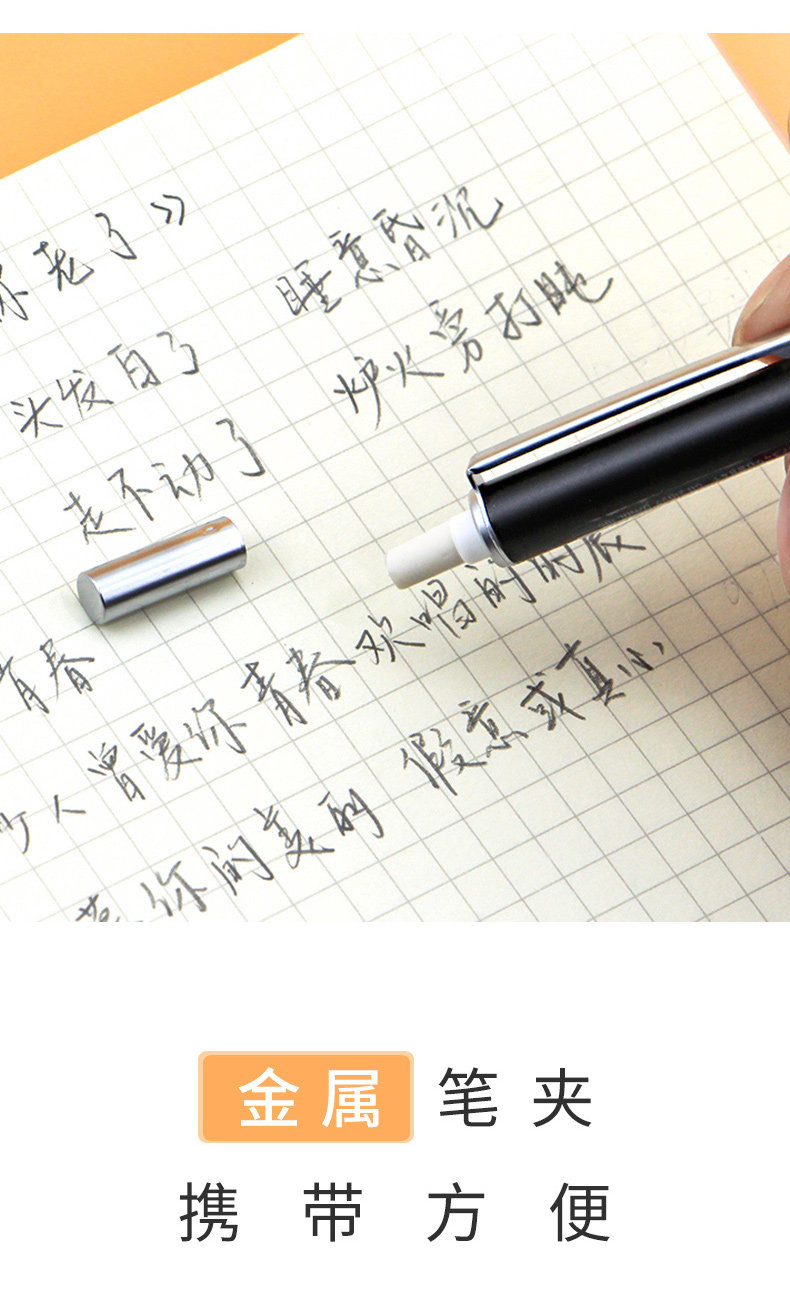 你老了》
头发白了
睡意昏沉
走不动了
炉火旁打盹
青春
少人曾爱你青春欢唱的时辰
你的美丽 假意或真心
金属笔夹
携带方便